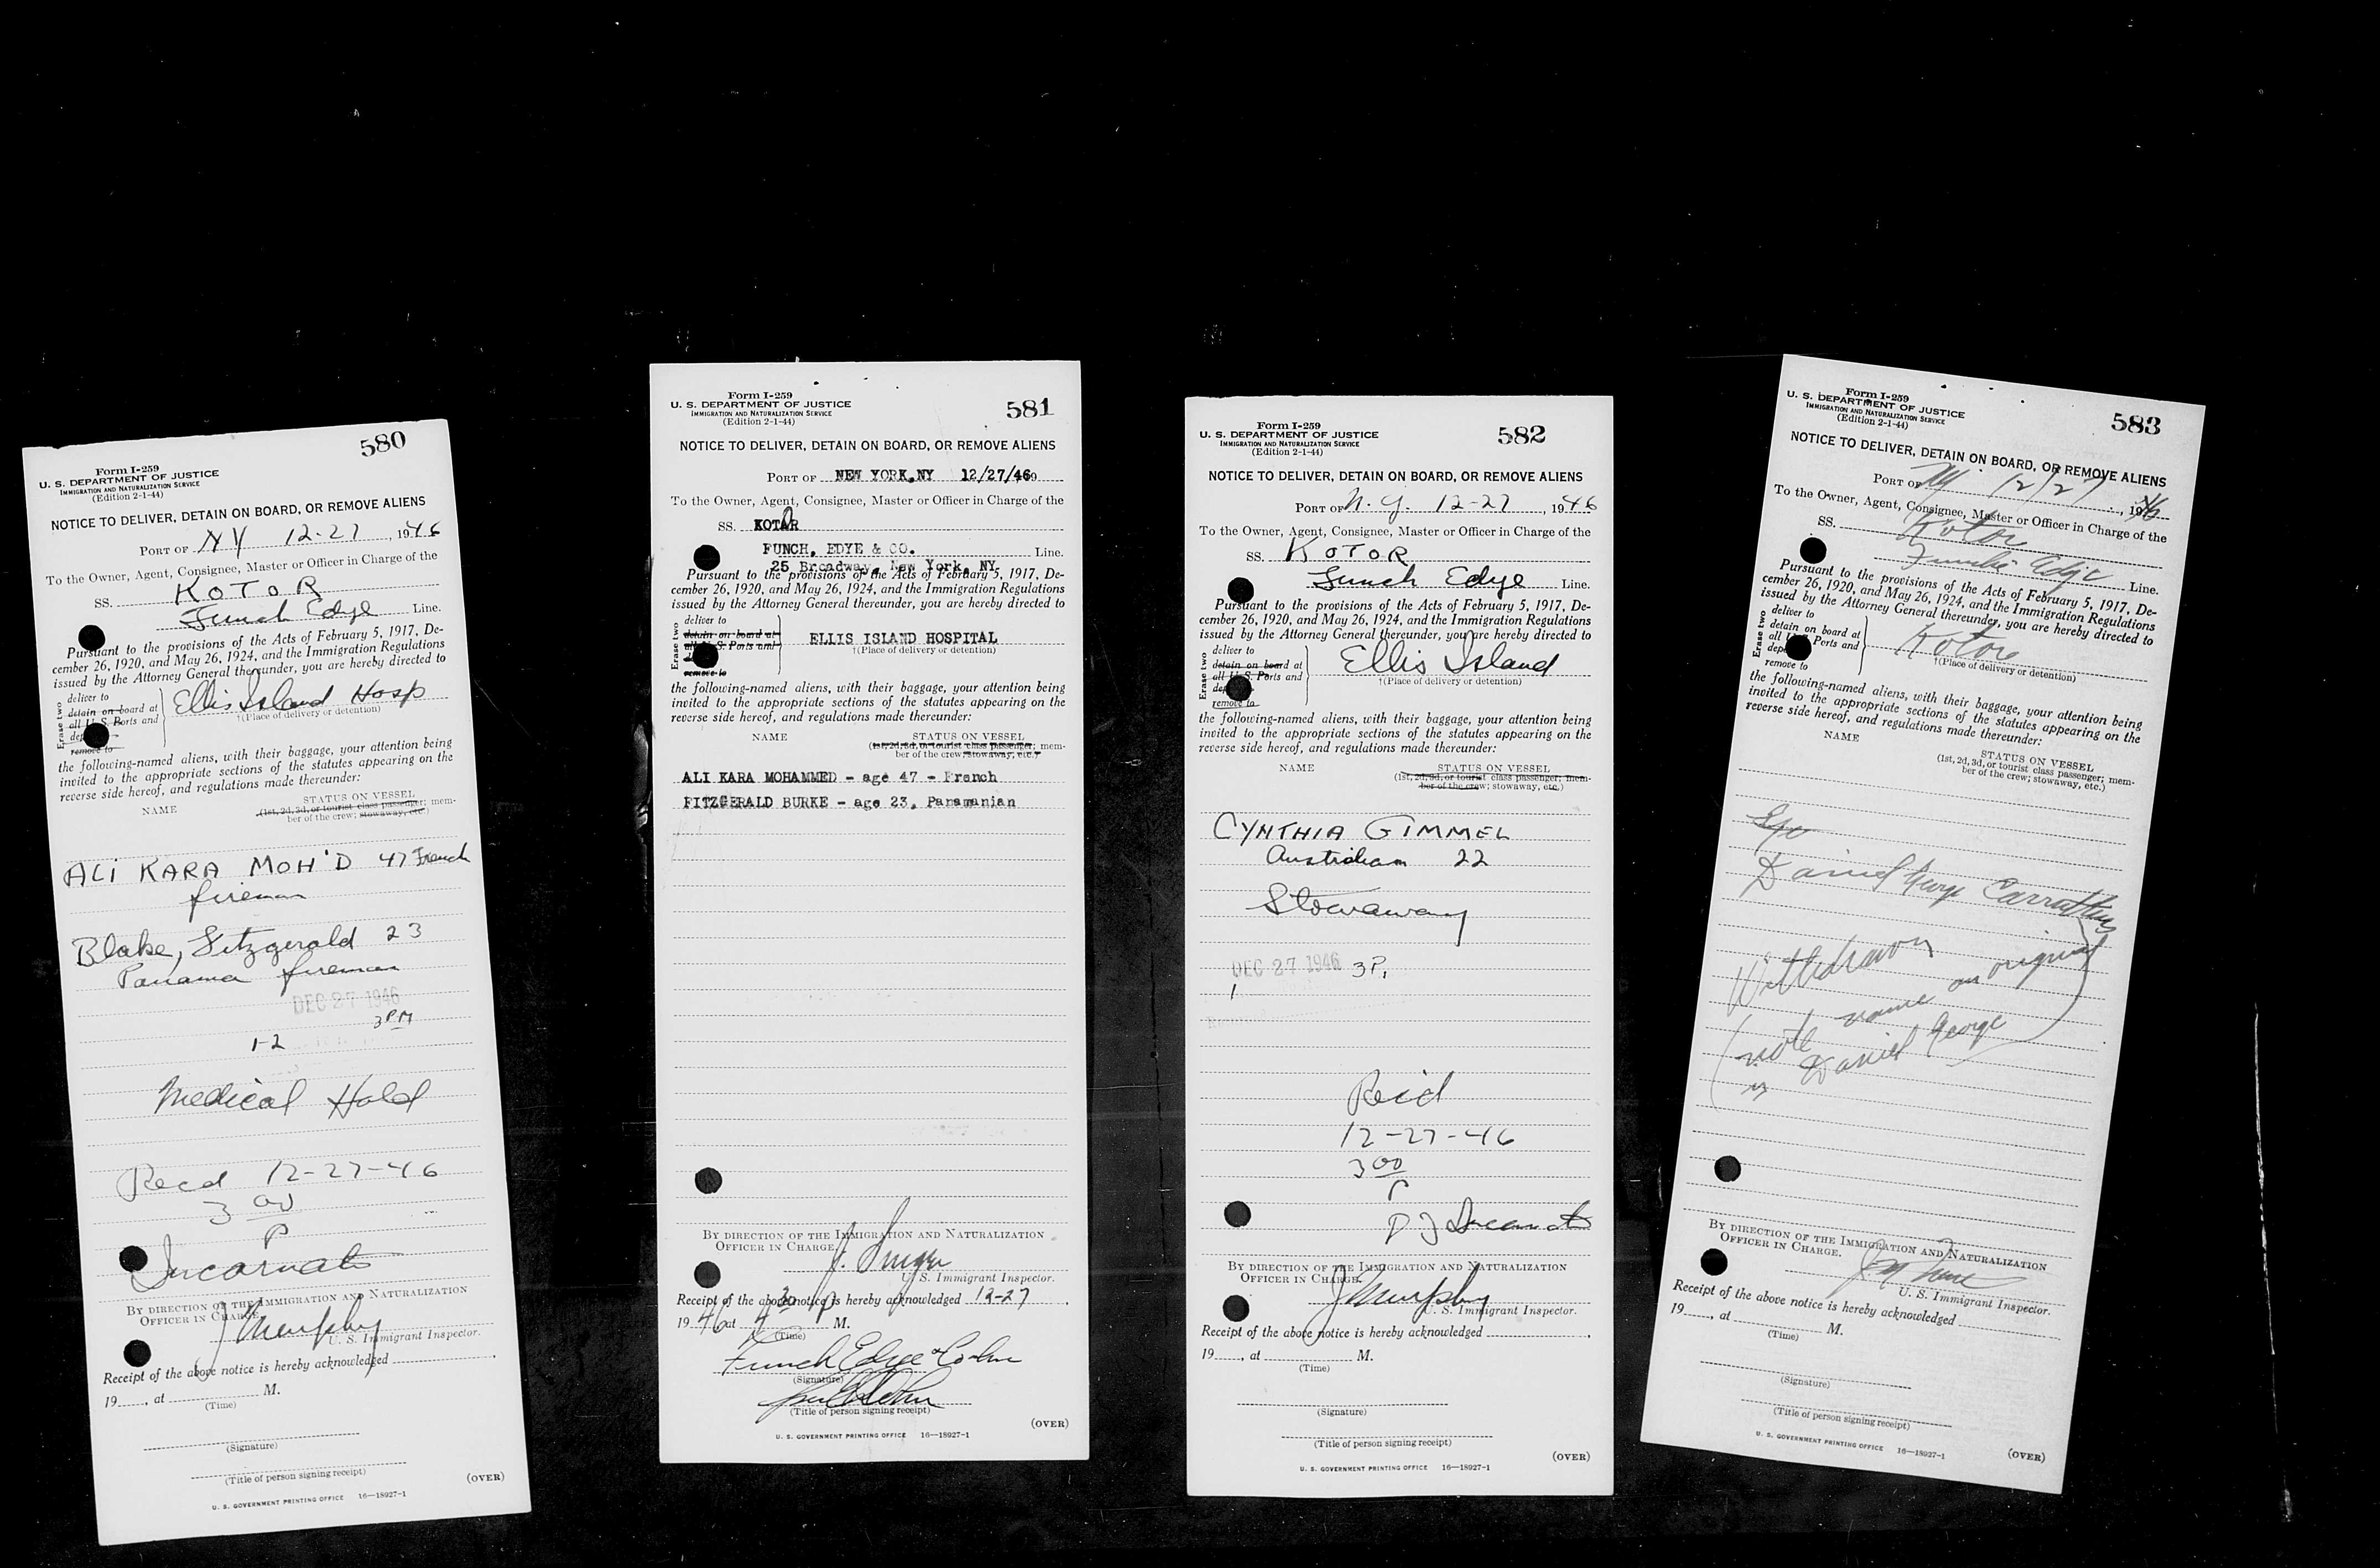 580
Form I-259
U. S. DEPARTMENT OF JUSTICE
IMMIGRATION AND NATURALIZATION SERVICE
(Edition 2-1-44)
NOTICE TO DELIVER, DETAIN ON BOARD, OR REMOVE ALIENS
PORT OF NY 12-27, 1946
To the Owner, Agent, Consignee, Master or Officer in Charge of the
SS. KOTOR
Funch Edye Line.
Pursuant to the provisions of the Acts of February 5, 1917, De-
cember 26, 1920, and May 26, 1924, and the Immigration Regulations
issued by the Attorney General thereunder, you are hereby directed to
Erase two
deliver to
detain on board at
all U. S. Ports and
remove to
Ellis Island Hosp
†(Place of delivery or detention)
the following-named aliens, with their baggage, your attention being
invited to the appropriate sections of the statutes appearing on the
reverse side hereof, and regulations made thereunder:
NAME STATUS ON VESSEL
(1st, 2d, 3d, or tourist class passenger; mem-
ber of the crew; stowaway, etc.)
ALI KARA MOH'D 47 French
fireman
Blake, Fitzgerald 23
Panama fireman
DEC 27 1946
3 PM
1-2
Medical Hold
Recd 12-27-46
3 00
P
Incarnato
BY DIRECTION OF THE IMMIGRATION AND NATURALIZATION
OFFICER IN CHARGE.
J Murphy
U. S. Immigrant Inspector.
Receipt of the above notice is hereby acknowledged
19, at M.
(Time)
(Signature)
(Title of person signing receipt)
(OVER)
U. S. GOVERNMENT PRINTING OFFICE 16—18927-1
581
Form I-259
U. S. DEPARTMENT OF JUSTICE
IMMIGRATION AND NATURALIZATION SERVICE
(Edition 2-1-44)
NOTICE TO DELIVER, DETAIN ON BOARD, OR REMOVE ALIENS
PORT OF NEW YORK,NY 12/27/46
To the Owner, Agent, Consignee, Master or Officer in Charge of the
SS. KOTOR
FUNCH, EDYE & CO. Line.
25 Broadway, New York, NY
Pursuant to the provisions of the Acts of February 5, 1917, De-
cember 26, 1920, and May 26, 1924, and the Immigration Regulations
issued by the Attorney General thereunder, you are hereby directed to
Erase two
deliver to
detain on board at
all U. S. Ports and
remove to
ELLIS ISLAND HOSPITAL
†(Place of delivery or detention)
the following-named aliens, with their baggage, your attention being
invited to the appropriate sections of the statutes appearing on the
reverse side hereof, and regulations made thereunder:
NAME STATUS ON VESSEL
(1st, 2d, 3d, or tourist class passenger; mem-
ber of the crew; stowaway, etc.)
ALI KARA MOHAMMED - age 47 - French
FITZGERALD BURKE - age 23, Panamanian
BY DIRECTION OF THE IMMIGRATION AND NATURALIZATION
OFFICER IN CHARGE.
U. S. Immigrant Inspector.
Receipt of the above notice is hereby acknowledged 12-27
1946 at 4 30 P M.
(Time)
Funch Edye & Co Inc
(Signature)
(Title of person signing receipt)
(OVER)
U. S. GOVERNMENT PRINTING OFFICE 16—18927-1
582
Form I-259
U. S. DEPARTMENT OF JUSTICE
IMMIGRATION AND NATURALIZATION SERVICE
(Edition 2-1-44)
NOTICE TO DELIVER, DETAIN ON BOARD, OR REMOVE ALIENS
PORT OF N.Y. 12-27, 1946
To the Owner, Agent, Consignee, Master or Officer in Charge of the
SS. KOTOR
Funch Edye Line.
Pursuant to the provisions of the Acts of February 5, 1917, De-
cember 26, 1920, and May 26, 1924, and the Immigration Regulations
issued by the Attorney General thereunder, you are hereby directed to
Erase two
deliver to
detain on board at
all U. S. Ports and
remove to
Ellis Island
†(Place of delivery or detention)
the following-named aliens, with their baggage, your attention being
invited to the appropriate sections of the statutes appearing on the
reverse side hereof, and regulations made thereunder:
NAME STATUS ON VESSEL
(1st, 2d, 3d, or tourist class passenger; mem-
ber of the crew; stowaway, etc.)
CYNTHIA GIMMEL
22
Stowaway
DEC 27 1946 3P.
1
Rec'd
12-27-46
3 00
P
BY DIRECTION OF THE IMMIGRATION AND NATURALIZATION
OFFICER IN CHARGE.
J Murphy
U. S. Immigrant Inspector.
Receipt of the above notice is hereby acknowledged
19, at M.
(Time)
(Signature)
(Title of person signing receipt)
(OVER)
U. S. GOVERNMENT PRINTING OFFICE 16—18927-1
583
Form I-259
U. S. DEPARTMENT OF JUSTICE
IMMIGRATION AND NATURALIZATION SERVICE
(Edition 2-1-44)
NOTICE TO DELIVER, DETAIN ON BOARD, OR REMOVE ALIENS
PORT OF NY 12/27, 1946
To the Owner, Agent, Consignee, Master or Officer in Charge of the
SS. Kotor
Funch Edye Line.
Pursuant to the provisions of the Acts of February 5, 1917, De-
cember 26, 1920, and May 26, 1924, and the Immigration Regulations
issued by the Attorney General thereunder, you are hereby directed to
Erase two
deliver to
detain on board at
all U. S. Ports and
remove to
Kotor
†(Place of delivery or detention)
the following-named aliens, with their baggage, your attention being
invited to the appropriate sections of the statutes appearing on the
reverse side hereof, and regulations made thereunder:
NAME STATUS ON VESSEL
(1st, 2d, 3d, or tourist class passenger; mem-
ber of the crew; stowaway, etc.)
Daniel George Carruthers
Withdrawn
(note name on original
is Daniel George)
BY DIRECTION OF THE IMMIGRATION AND NATURALIZATION
OFFICER IN CHARGE.
U. S. Immigrant Inspector.
Receipt of the above notice is hereby acknowledged
19, at M.
(Time)
(Signature)
(Title of person signing receipt)
(OVER)
U. S. GOVERNMENT PRINTING OFFICE 16—18927-1